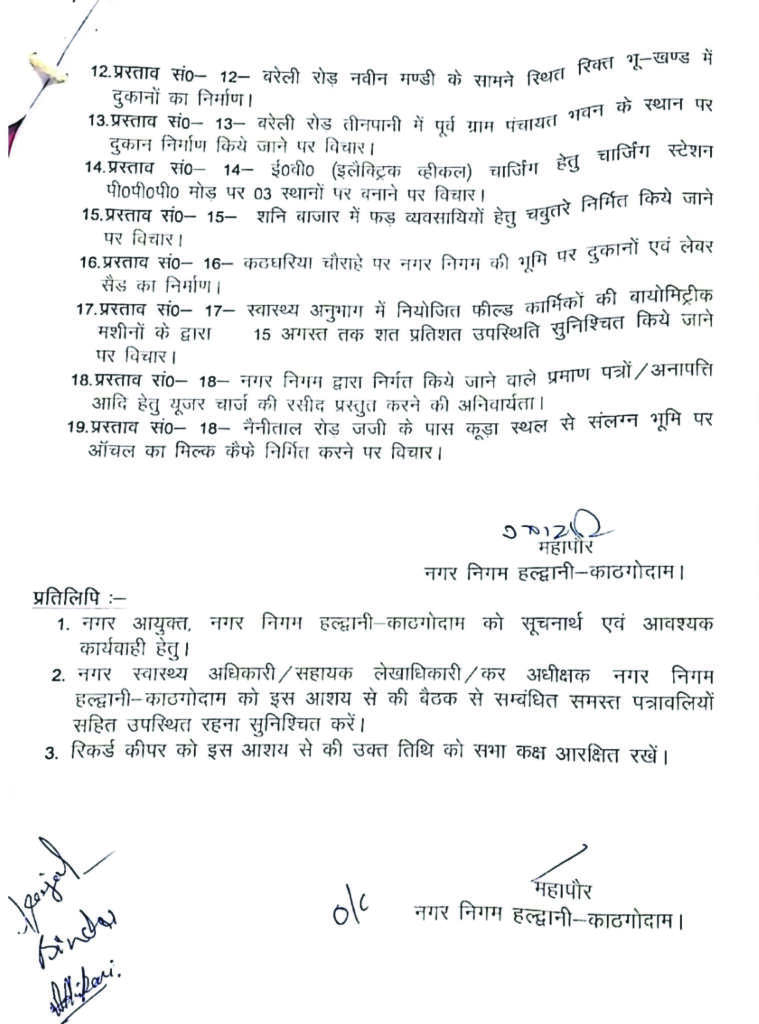 12.प्रस्ताव सं0– 12– बरेली रोड़ नवीन मण्डी के सामने स्थित रिक्त भू–खण्ड में
दुकानों का निर्माण।
13.प्रस्ताव सं0– 13– बरेली रोड तीनपानी में पूर्व ग्राम पंचायत भवन के स्थान पर
दुकान निर्माण किये जाने पर विचार।
14.प्रस्ताव सं0– 14– ई0वी0 (इलैक्ट्रिक व्हीकल) चार्जिंग हेतु चार्जिंग स्टेशन
पी0पी0पी0 मोड़ पर 03 स्थानों पर बनाने पर विचार।
15.प्रस्ताव सं0– 15– शनि बाजार में फड़ व्यवसायियों हेतु चबुतरे निर्मित किये जाने
पर विचार।
16.प्रस्ताव सं0– 16– कठघरिया चौराहे पर नगर निगम की भूमि पर दुकानों एवं लेवर
सैड का निर्माण।
17.प्रस्ताव सं0– 17– स्वारथ्य अनुभाग में नियोजित फील्ड कार्मिकों की बायोमिट्रीक
मशीनों के द्वारा 15 अगस्त तक शत प्रतिशत उपस्थिति सुनिश्चित किये जाने
पर विचार।
18.प्रस्ताव सं0– 18– नगर निगम द्वारा निर्गत किये जाने वाले प्रमाण पत्रों/अनापत्ति
आदि हेतु यूजर चार्ज की रसीद प्रस्तुत करने की अनिवार्यता।
19.प्रस्ताव सं0– 18– नैनीताल रोड़ जजी के पास कूड़ा स्थल से संलग्न भूमि पर
ऑचल का मिल्क कैफे निर्मित करने पर विचार।
महापौर
नगर निगम हल्द्वानी–काठगोदाम।
प्रतिलिपि :–
1. नगर आयुक्त, नगर निगम हल्द्वानी–काठगोदाम को सूचनार्थ एवं आवश्यक
कार्यवाही हेतु।
2. नगर स्वारथ्य अधिकारी/सहायक लेखाधिकारी/कर अधीक्षक नगर निगम
हल्द्वानी–काठगोदाम को इस आशय से की बैठक से सम्बंधित समस्त पत्रावलियों
सहित उपस्थित रहना सुनिश्चित करें।
3. रिकर्ड कीपर को इस आशय से की उक्त तिथि को सभा कक्ष आरक्षित रखें।
महापौर
o/c नगर निगम हल्द्वानी–काठगोदाम।